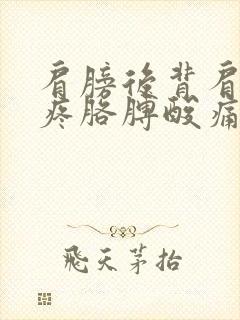 肩膀后背肩
疼胳膊酸痛
飛天茅抬